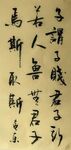 子謂子賤君子哉
若人魯無君子
者斯焉取斯